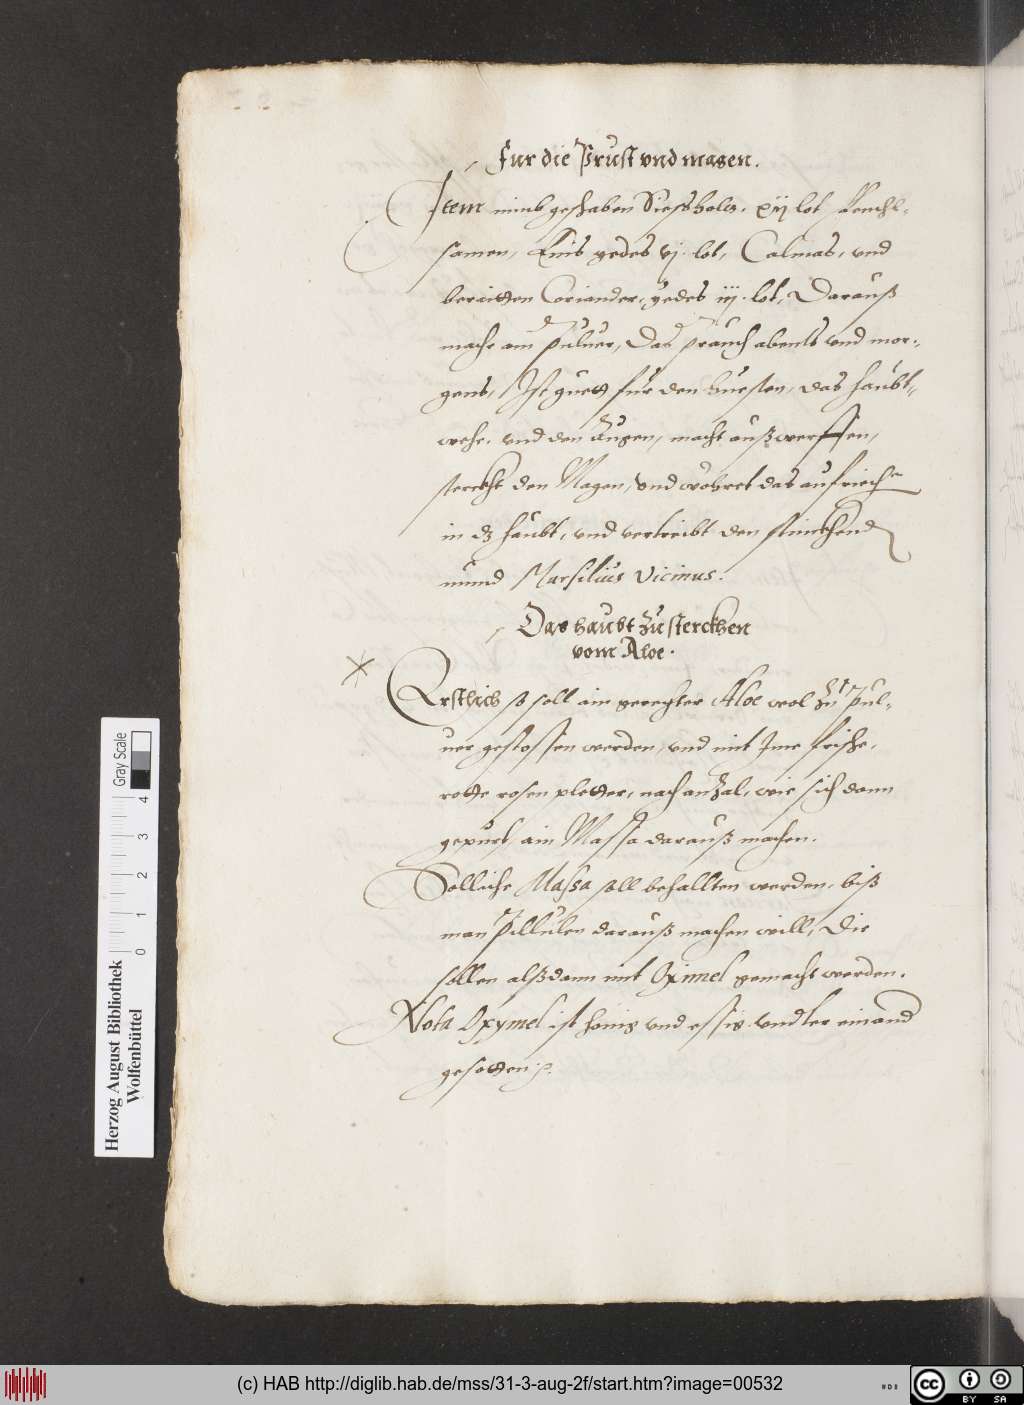 Fur die Prust vnd magen.
Item nimb geschaben Siessholtz. xij lot Fenchl-
samen, Enis yedes vj. lot, Calmas, vnd
beraitten Coriander, yedes iij. lot, Darauß
mach ain puluer, Das prauch abents vnd mor-
gens, Ist guett für den huesten, das haubt-
wehe, vnd den Augen, macht außwerffen,
sterckht den Magen, vnd wöhret das aufriech
in dz haubt, vnd vertreibt den stinckhend
mund Marsilius Vicinus.
Das haubt zu sterckhen
vom Aloe.
Erstlich so soll ain gerechter Aloe wol zu pul-
uer gestossen werden, vnd mit Ime frische,
rotte rosen pletter, nach anzal, wie sich dann
gepurt, ain Massa darauß machen.
Solliche Massa soll behallten werden, biß
man Pillulen darauß machen will, Die
sollen alßdann mit Oximel gemacht werden.
Nota Oxymel ist honig vnd essig vndter einand
gesotten.
Herzog August Bibliothek
Wolfenbüttel
0 1 2 3 4
Gray Scale
(c) HAB http://diglib.hab.de/mss/31-3-aug-2f/start.htm?image=00532
cc BY SA